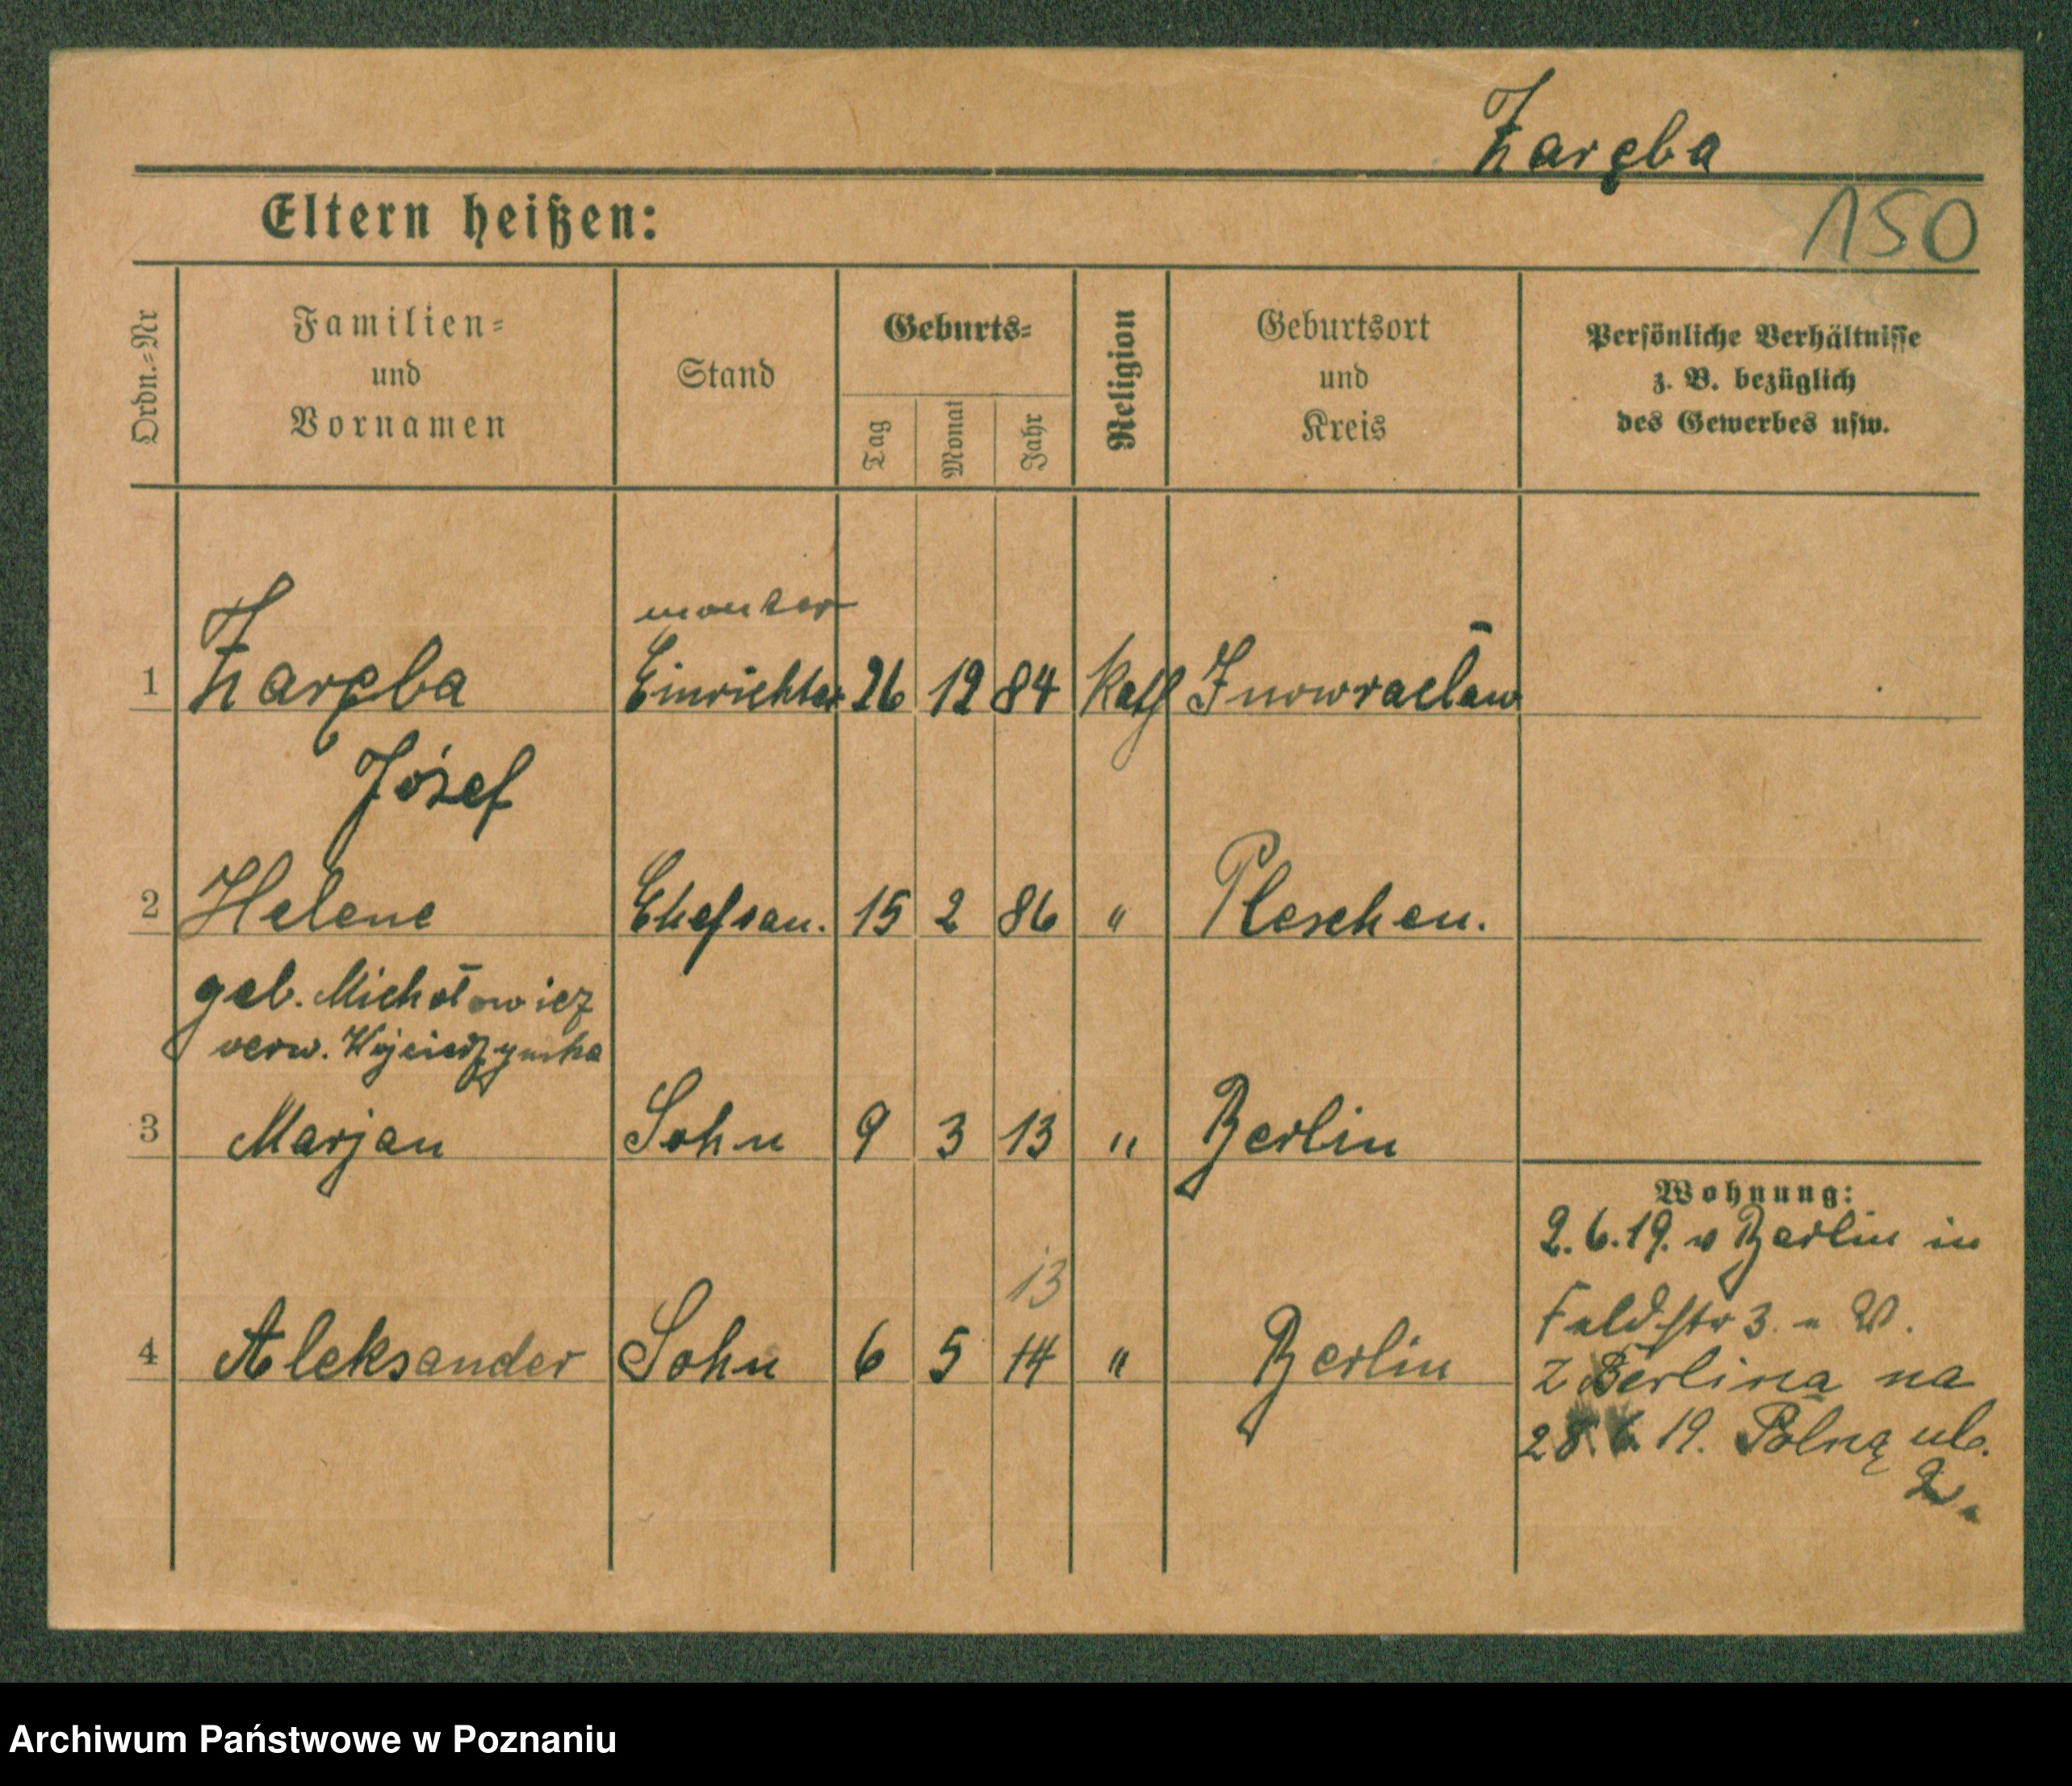 Zaręba
Eltern heißen:
150
Ordn.=Nr
Familien=
und
Vornamen
Stand
Geburts=
Tag
Monat
Jahr
Religion
Geburtsort
und
Kreis
Persönliche Verhältnisse
z. B. bezüglich
des Gewerbes usw.
monter
1 Zaręba Einrichter 26 12 84 Kath Inowracław
Józef
2 Helene Ehefrau. 15 2 86 " Pleschen.
geb. Michałowicz
verw.
3 Marjan Sohn 9 3 13 " Berlin
Wohnung:
2.6.19. v Berlin in
Feldstr 3. - W.
13
4 Aleksander Sohn 6 5 14 " Berlin
z Berlina na
19. Polną ul.
Archiwum Państwowe w Poznaniu